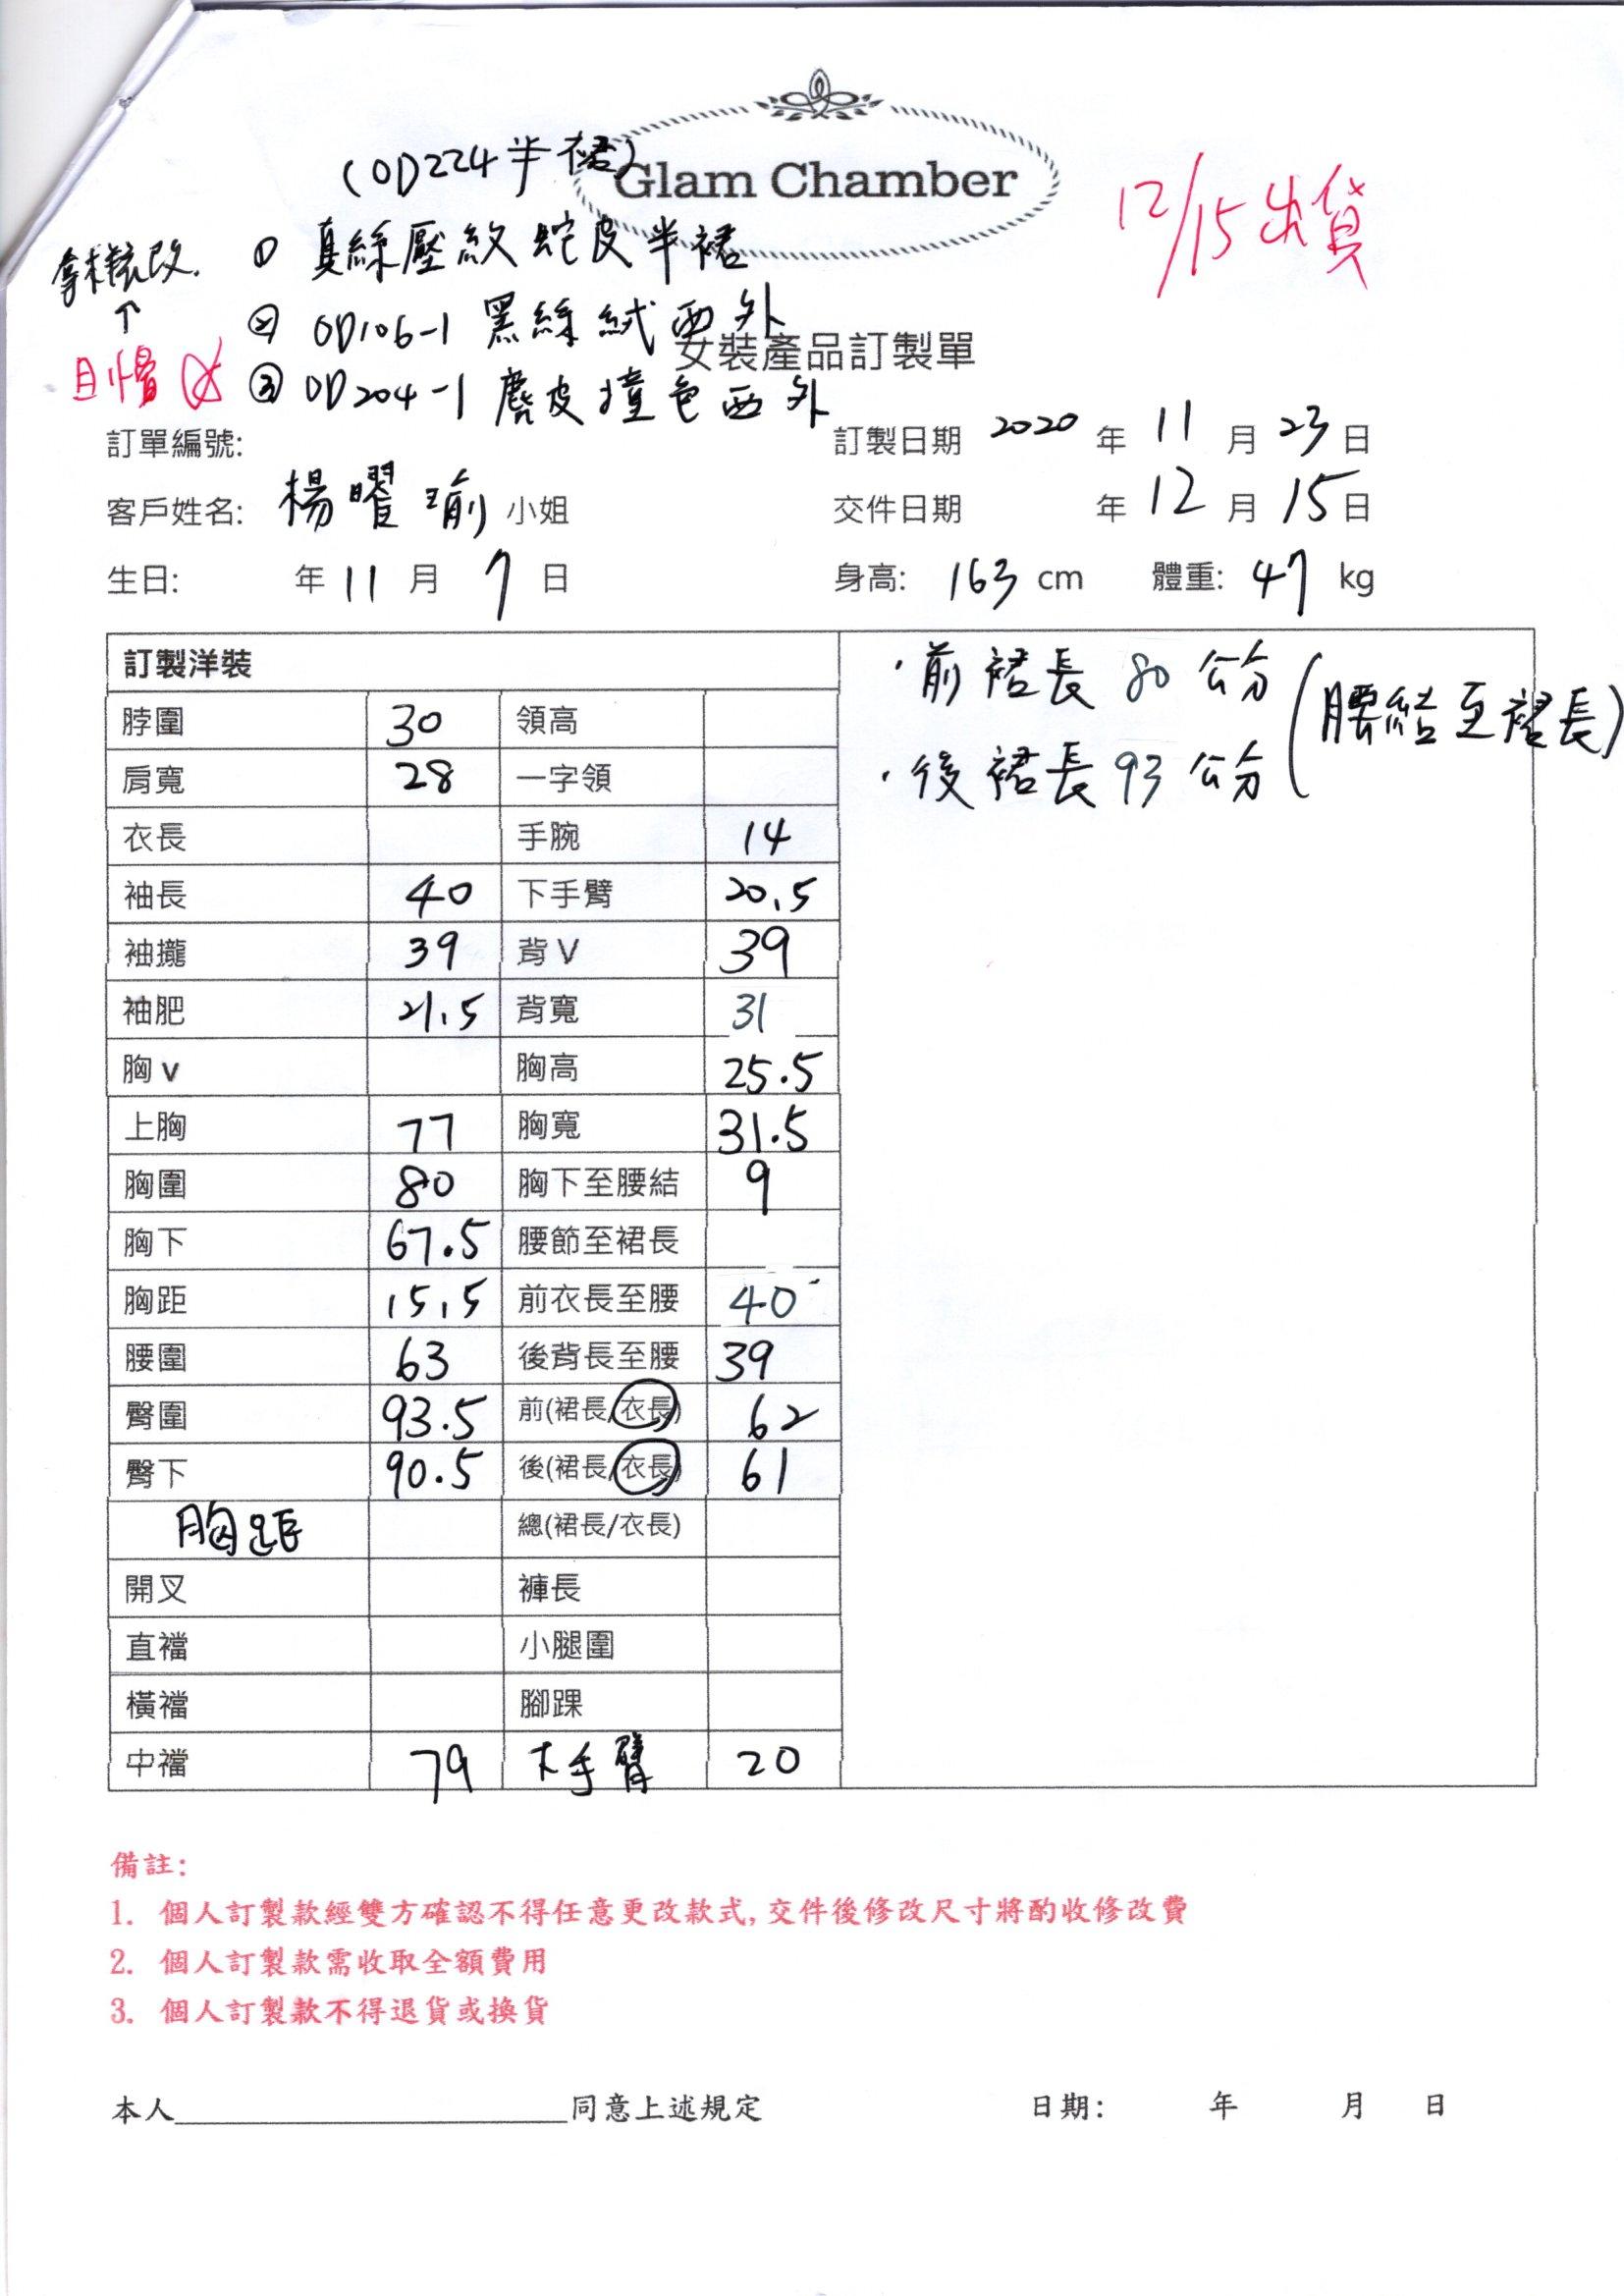 (OD224半裙)
Glam Chamber
12/15出貨
① 真絲壓紋蛇皮半裙
拿樣衣改.
↑
② OD106-1 黑絲絨西外
女裝產品訂製單
③ OD204-1 麂皮撞色西外
訂單編號:
訂製日期 2020 年 11 月 23 日
客戶姓名: 楊曜瑜 小姐
交件日期 年 12 月 15 日
生日: 年 11 月 7 日
身高: 163 cm 體重: 47 kg
訂製洋裝
·前裙長 80 公分
·後裙長 93 公分
(腰結至裙長)
脖圍 30 領高
肩寬 28 一字領
衣長 手腕 14
袖長 40 下手臂 20.5
袖攏 39 背V 39
袖肥 21.5 背寬 31
胸v 胸高 25.5
上胸 77 胸寬 31.5
胸圍 80 胸下至腰結 9
胸下 67.5 腰節至裙長
胸距 15.5 前衣長至腰 40
腰圍 63 後背長至腰 39
臀圍 93.5 前(裙長/衣長) 62
臀下 90.5 後(裙長/衣長) 61
胸距 總(裙長/衣長)
開叉 褲長
直襠 小腿圍
橫襠 腳踝
中襠 79 大手臂 20
備註:
1. 個人訂製款經雙方確認不得任意更改款式,交件後修改尺寸將酌收修改費
2. 個人訂製款需收取全額費用
3. 個人訂製款不得退貨或換貨
本人 同意上述規定
日期: 年 月 日